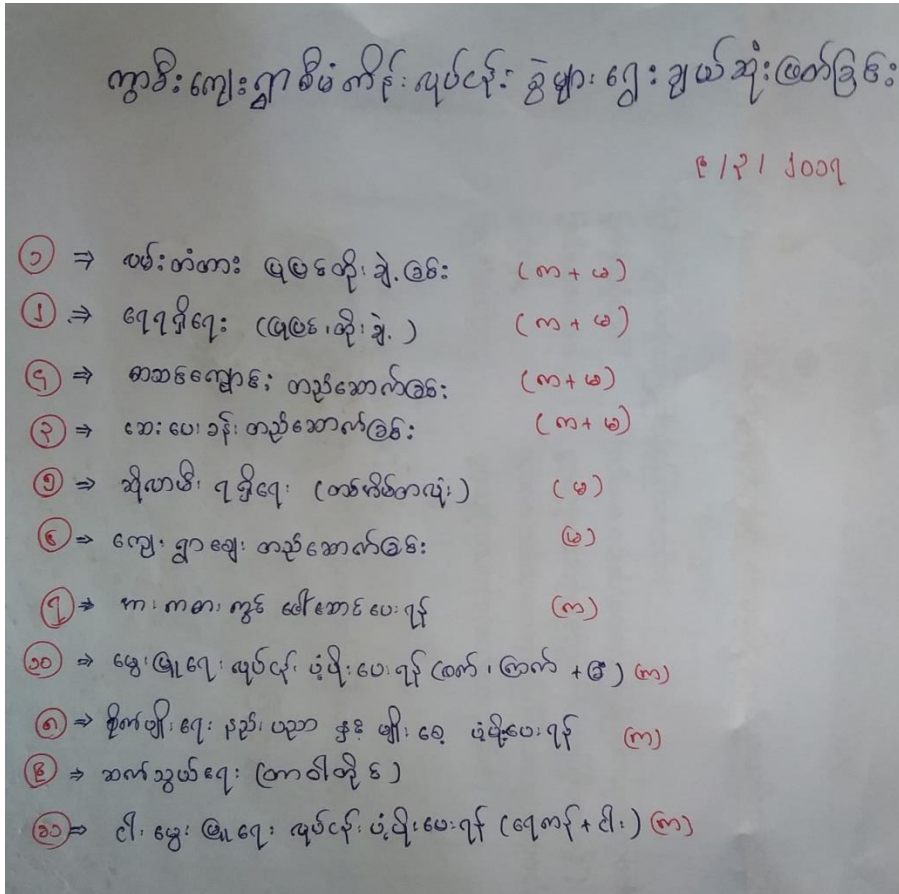 ကွာစီးကျေးရွာစီမံကိန်းလုပ်ငန်းခွဲများရွေးချယ်ဆုံးဖြတ်ခြင်း
၉/၃/၂၀၁၇
၁ ⇒ လမ်းတံတား ပြုပြင်တိုးချဲ့ခြင်း (ကာ + မ)
၂ ⇒ ရေရရှိရေး (ပြုပြင်၊တိုးချဲ့) (ကာ + မ)
၄ ⇒ စာသင်ကျောင်း တည်ဆောက်ခြင်း (ကာ + မ)
၃ ⇒ ဆေးပေးခန်းတည်ဆောက်ခြင်း (ကာ + မ)
၅ ⇒ ဆိုလာမီး ရရှိရေး (တစ်အိမ်တလုံး) (မ)
၆ ⇒ ကျေးရွာဈေး တည်ဆောက်ခြင်း (မ)
၇ ⇒ အားကစားကွင်း ဖော်ဆောင်ပေးရန် (ကာ)
၁၀ ⇒ မွေးမြူရေးလုပ်ငန်း ပံ့ပိုးပေးရန် (ဝက်၊ကြက် + ခြံ) (ကာ)
၈ ⇒ စိုက်ပျိုးရေးနည်းပညာ နှင့် မျိုးစေ့ ပံ့ပိုးပေးရန် (ကာ)
၉ ⇒ ဆက်သွယ်ရေး (တာဝါတိုင်)
၁၁ ⇒ ငါးမွေးမြူရေး လုပ်ငန်းပံ့ပိုးပေးရန် (ရေကန် + ငါး) (ကာ)